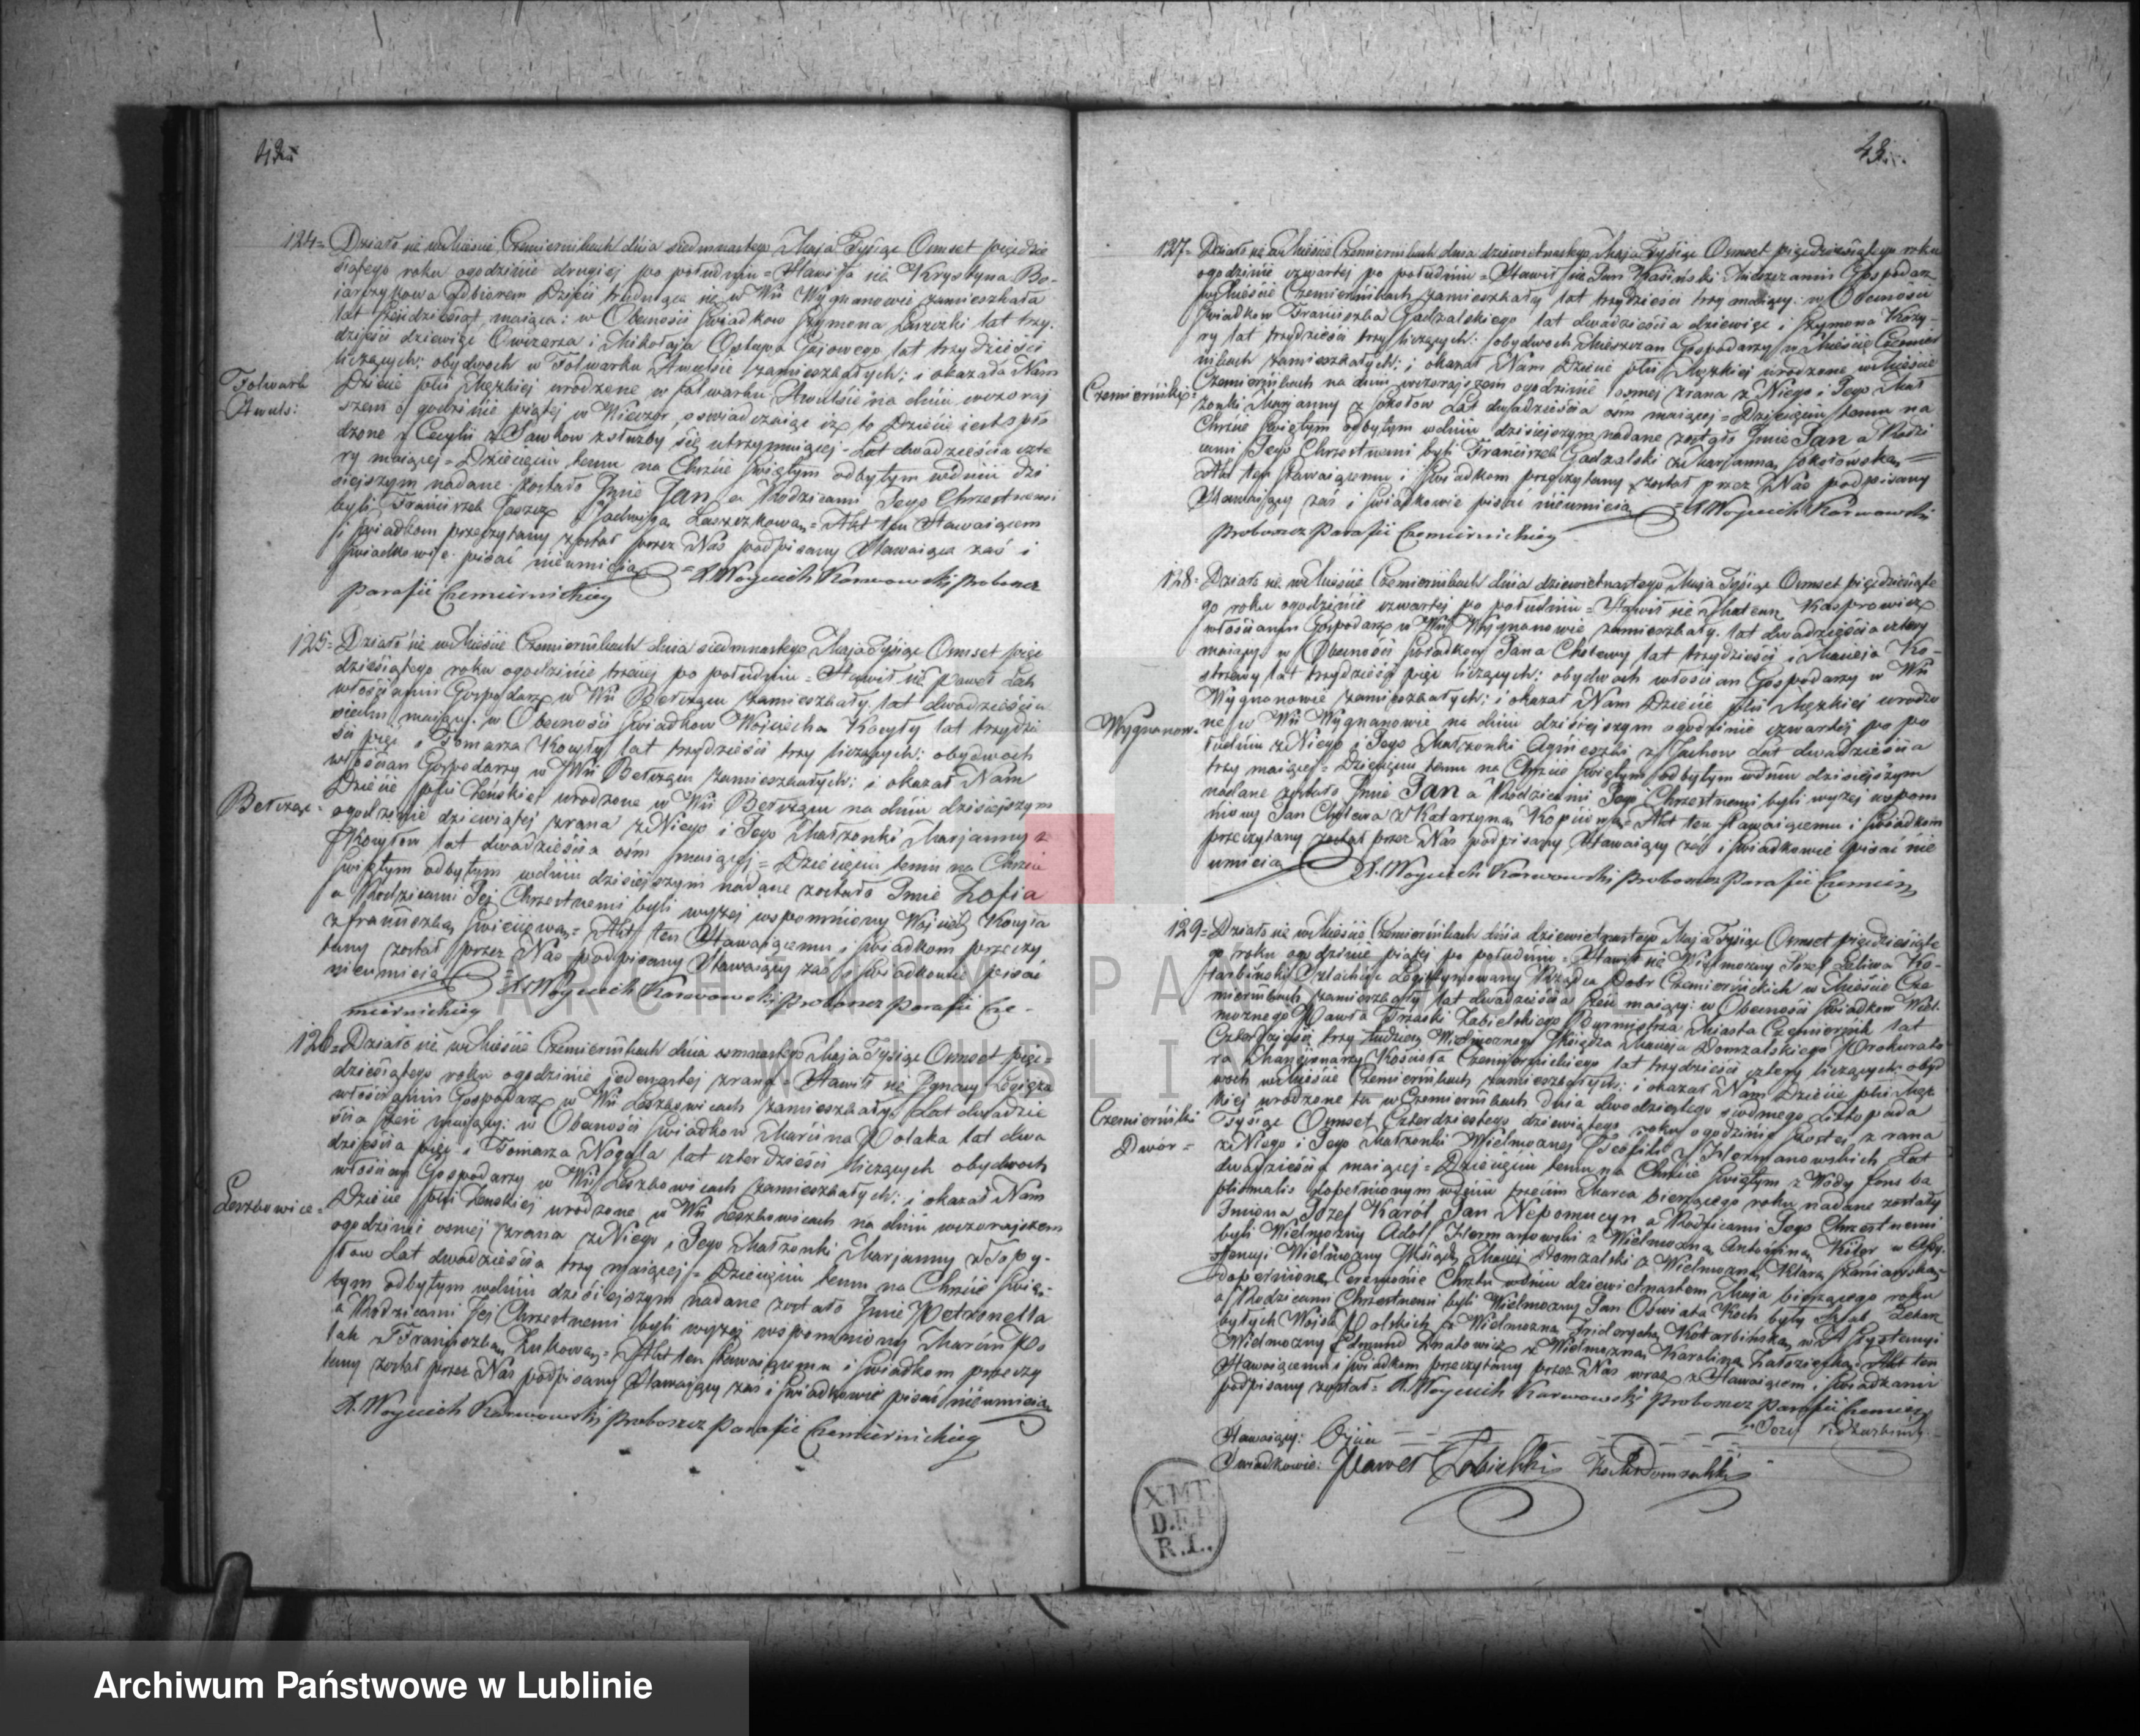 42.
124= Działo się w Mieście Czemiernikach dnia siedmnastego Maja Tysiąc Ośmset pięćdzie
siątego roku ogodzinie drugiej po południu = Stawiła się Krystyna Bo-
iarczykowa Odbieraniem Dzieci trudniąca się w Wsi Wygnanowie zamieszkała
lat pięćdziesiąt maiąca; w Obecności świadków Szymona Łaszczki lat trzy-
dzieści dziewięć Owczarza i Mikołaja Ostapa Gajowego lat trzydzieści
liczących; obydwoch w Folwarku Awulsie zamieszkałych; i okazała Nam
Folwark
Awuls:
Dziecię płci Męzkiej urodzone w folwarku Awulsie na dniu wczoraj
szem o godzinie piątej w Wieczór, oświadczaiąc iż to Dziecię iest spło
dzone z Cecylii z Sawków z służby się utrzymuiącej = Lat dwadzieścia czte
ry maiącej = Dziecięciu temu na Chrzcie świętym odbytym w dniu dzi
sieyszym nadane zostało Imie Jan a Rodzicami Jego Chrzestnemi
byli Franciszek Jaszcz z Jadwigą Łaszczkową = Akt ten Stawaiącem
i świadkom przeczytany został przez Nas podpisany Stawaiąca zaś i
świadkowie pisać nieumieią = X. Woyciech Karwowski Proboszcz
Parafii Czemiernickiey
125= Działo się w Mieście Czemiernikach dnia siedmnastego Maja Tysiąc Ośmset pięć
dziesiątego roku ogodzinie trzeciej po południu = Stawił się Paweł Lak
włościanin Gospodarz w Wsi Bełczącu zamieszkały, lat dwadzieścia
siedm maiący; w Obecności świadków Wojciecha Kowyły lat trzydzie
ści pięć i Tomasza Kowyły lat trzydzieści trzy liczących; obydwoch
włościan Gospodarzy w Wsi Bełczącu zamieszkałych; i okazał Nam
Bełcząc=
Dziecię płci Żeńskiej urodzone w Wsi Bełczącu na dniu dzisiejszym
ogodzinie dziewiątej zrana z Niego i Jego Małżonki Marjanny z
Kowyłów lat dwadzieścia ośm maiącej = Dziecięciu temu na Chrzcie
świętym odbytym w dniu dzisiejszym nadane zostało Imie Zofia
a Rodzicami Jej Chrzestnemi byli wyżej wspomniony Wojciech Kowyła
z Franciszką = Akt ten Stawaiącemu i świadkom przeczy
tany został przez Nas podpisany Stawaiący zaś i świadkowie pisać
nieumieią = X. Woyciech Karwowski Proboszcz Parafii Cze-
miernickiey
126= Działo się w Mieście Czemiernikach dnia ośmnastego Maja Tysiąc Ośmset pięć=
dziesiątego roku ogodzinie jedenastej zrana = Stawił się Ignacy
włościanin Gospodarz w Wsi Leszkowicach zamieszkały, Lat dwadzie
ścia maiący; w Obecności świadków Marcina Polaka lat dwa
dzieścia pięć i Tomasza Nogala lat czterdzieści liczących obydwoch
włościan Gospodarzy w Wsi Leszkowicach zamieszkałych; i okazał Nam
Leszkowice=
Dziecię płci Żeńskiej urodzone w Wsi Leszkowicach na dniu wczorajszem
ogodzinie osmej zrana z Niego i Jego Małżonki Marjanny
Lat dwadzieścia trzy maiącej = Dziecięciu temu na Chrzcie świę-
tym odbytym w dniu dzisiejszym nadane zostało Imie Petronella
a Rodzicami Jej Chrzestnemi byli wyżej wspomniony Marcin Po
lak z Franciszką Żukową = Akt ten stawaiącemu i świadkom przeczy
tany został przez Nas podpisany Stawaiący zaś i świadkowie pisać nieumieią
X. Woyciech Karwowski Proboszcz Parafii Czemiernickiey
43.
127= Działo się w Mieście Czemiernikach dnia dziewietnastego Maja Tysiąc Ośmset pięćdziesiątego roku
ogodzinie czwartej po południu = Stawił się Jan Mieszczanin Gospodarz
w Mieście Czemiernikach zamieszkały lat trzydzieści trzy maiący; w Obecności
świadków Franciszka Gadzalskiego lat dwadzieścia dziewięć i Szymona Kozy-
ry lat trzydzieści trzy liczących; obydwoch Mieszczan Gospodarzy w Mieście Czemier
nikach zamieszkałych; i okazał Nam Dziecię płci Męzkiej urodzone w Mieście
Czemierniki=
Czemiernikach na dniu wczorajszem ogodzinie osmej zrana z Niego i Jego Mał
żonki Marjanny z Sokołów Lat dwadzieścia ośm maiącej = Dziecięciu temu na
Chrzcie świętym odbytym w dniu dzisiejszym nadane zostało Imie Jan a Rodzi
cami Jego Chrzestnemi byli Franciszek Gadzalski z Marjanną Sokołowską =
Akt ten Stawaiącemu i świadkom przeczytany został przez Nas podpisany
Stawaiący zaś i świadkowie pisać nieumieią = X. Woyciech Karwowski
Proboszcz Parafii Czemiernickiey
128= Działo się w Mieście Czemiernikach dnia dziewietnastego Maja Tysiąc Ośmset pięćdziesiąte
go roku ogodzinie czwartej po południu = Stawił się Mateusz Kasprowicz
włościanin Gospodarz w Wsi Wygnanowie zamieszkały, lat dwadzieścia cztery
maiący; w Obecności świadków Jana Cholewy lat trzydzieści i Macieja Ko-
strzewy lat trzydzieści pięć liczących; obydwoch włościan Gospodarzy w Wsi
Wygnanowie zamieszkałych; i okazał Nam Dziecię płci Męzkiej urodzo
Wygnanow=
ne w Wsi Wygnanowie na dniu dzisiejszym ogodzinie czwartej po po
łudniu z Niego i Jego Małżonki Agnieszki z Lat dwadzieścia
trzy maiącej = Dziecięciu temu na Chrzcie świętym odbytym w dniu dzisiejszym
nadane zostało Imie Jan a Rodzicami Jego Chrzestnemi byli wyżej wspom
niony Jan Cholewa z Katarzyną = Akt ten Stawaiącemu i świadkom
przeczytany został przez Nas podpisany Stawaiący zaś i świadkowie pisać nie
umieią X. Woyciech Karwowski Proboszcz Parafii Czemier
129= Działo się w Mieście Czemiernikach dnia dziewietnastego Maja Tysiąc Ośmset pięćdziesiąte
go roku ogodzinie piątej po południu = Stawił się Wielmożny Józef Ko-
tarbiński Szlachcic Legitymowany Rządca Dobr Czemiernickich w Mieście Cze
miernikach zamieszkały lat dwadzieścia maiący; w Obecności świadków Wiel-
możnego Pawła Zabielskiego Burmistrza Miasta Czemiernik lat
Czterdzieści trzy tudzież Wielmożnego Xiędza Macieja Domzalskiego Prokurato-
ra Mansjonarzy Kościoła Czemiernickiego lat trzydzieści cztery liczących; obyd
woch w Mieście Czemiernikach zamieszkałych; i okazał Nam Dziecię płci Męz
kiej urodzone tu w Czemiernikach dnia dwudziestego siódmego Listopada
Czemierniki
Dwór=
Tysiąc Ośmset Czterdziestego dziewiątego roku ogodzinie szostej z rana
z Niego i Jego Małżonki Wielmożnej Teofili z Hermanowskich Lat
dwadzieścia maiącej = Dziecięciu temu na Chrzcie świętym z Wody fons ba
ptismalis dopełnionym w dniu trzecim Marca bieżącego roku nadane zostały
Imiona Józef Karol Jan Nepomucyn a Rodzicami Jego Chrzestnemi
byli Wielmożny Adolf Hermanowski z Wielmożną Antoniną w Asy-
stencyi Wielmożny Xiądz Maciej Domzalski z Wielmożną Klarą Szaniawską=
dopełnione Ceremonie Chrztu w dniu dziewietnastem Maja bieżącego roku
a Rodzicami Chrzestnemi byli Wielmożny Pan Koch były Lekarz
byłych Wojsk Polskich z Wielmożną Fryderyką Kotarbińską w Asystencyi
Wielmożny Edmund z Wielmożną Karoliną = Akt ten
Stawaiącemu i świadkom przeczytany przez Nas wraz z Stawaiącem i świadkami
podpisany został = X. Woyciech Karwowski Proboszcz Parafii Czemier
Stawaiący: Ojciec Józef Kotarbiński
Świadkowie: Paweł Zabielski Xs M Domzalski
X.M.T.
D.F.P.
R.L.
ARCHIWUM PAŃSTWOWE
W LUBLINIE
Archiwum Państwowe w Lublinie